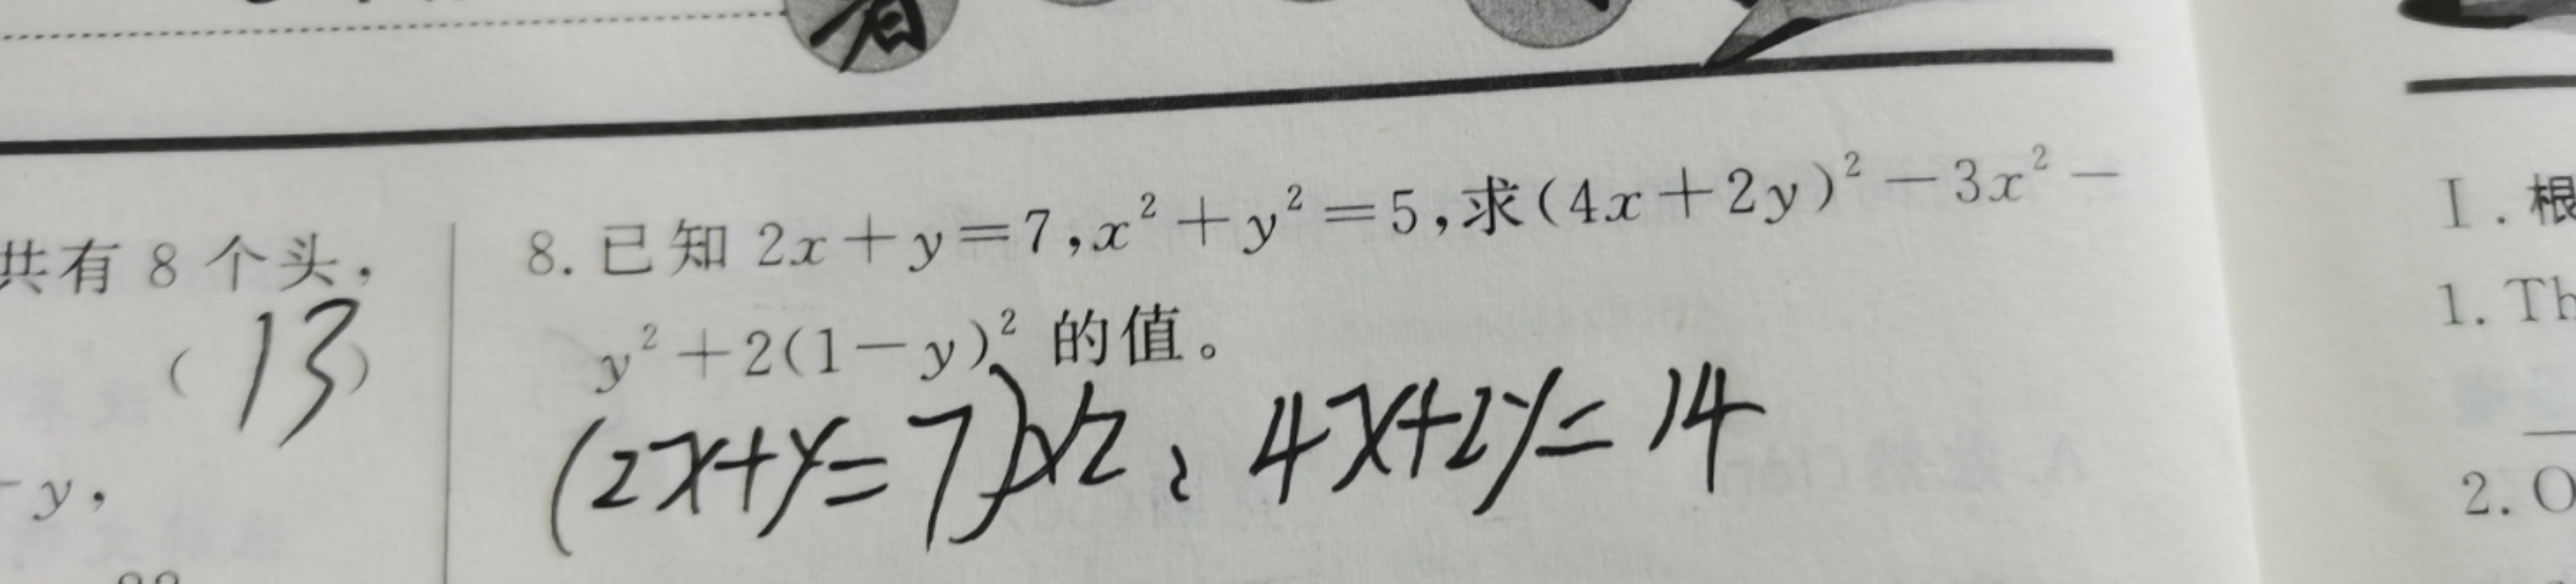 看
共有 8 个头,
(13)
-y,
8. 已知 2x+y=7,x²+y²=5,求(4x+2y)²-3x²-
y²+2(1-y)² 的值。
(2x+y=7)×2; 4x+2y=14
I. 根
1. Th
2. O